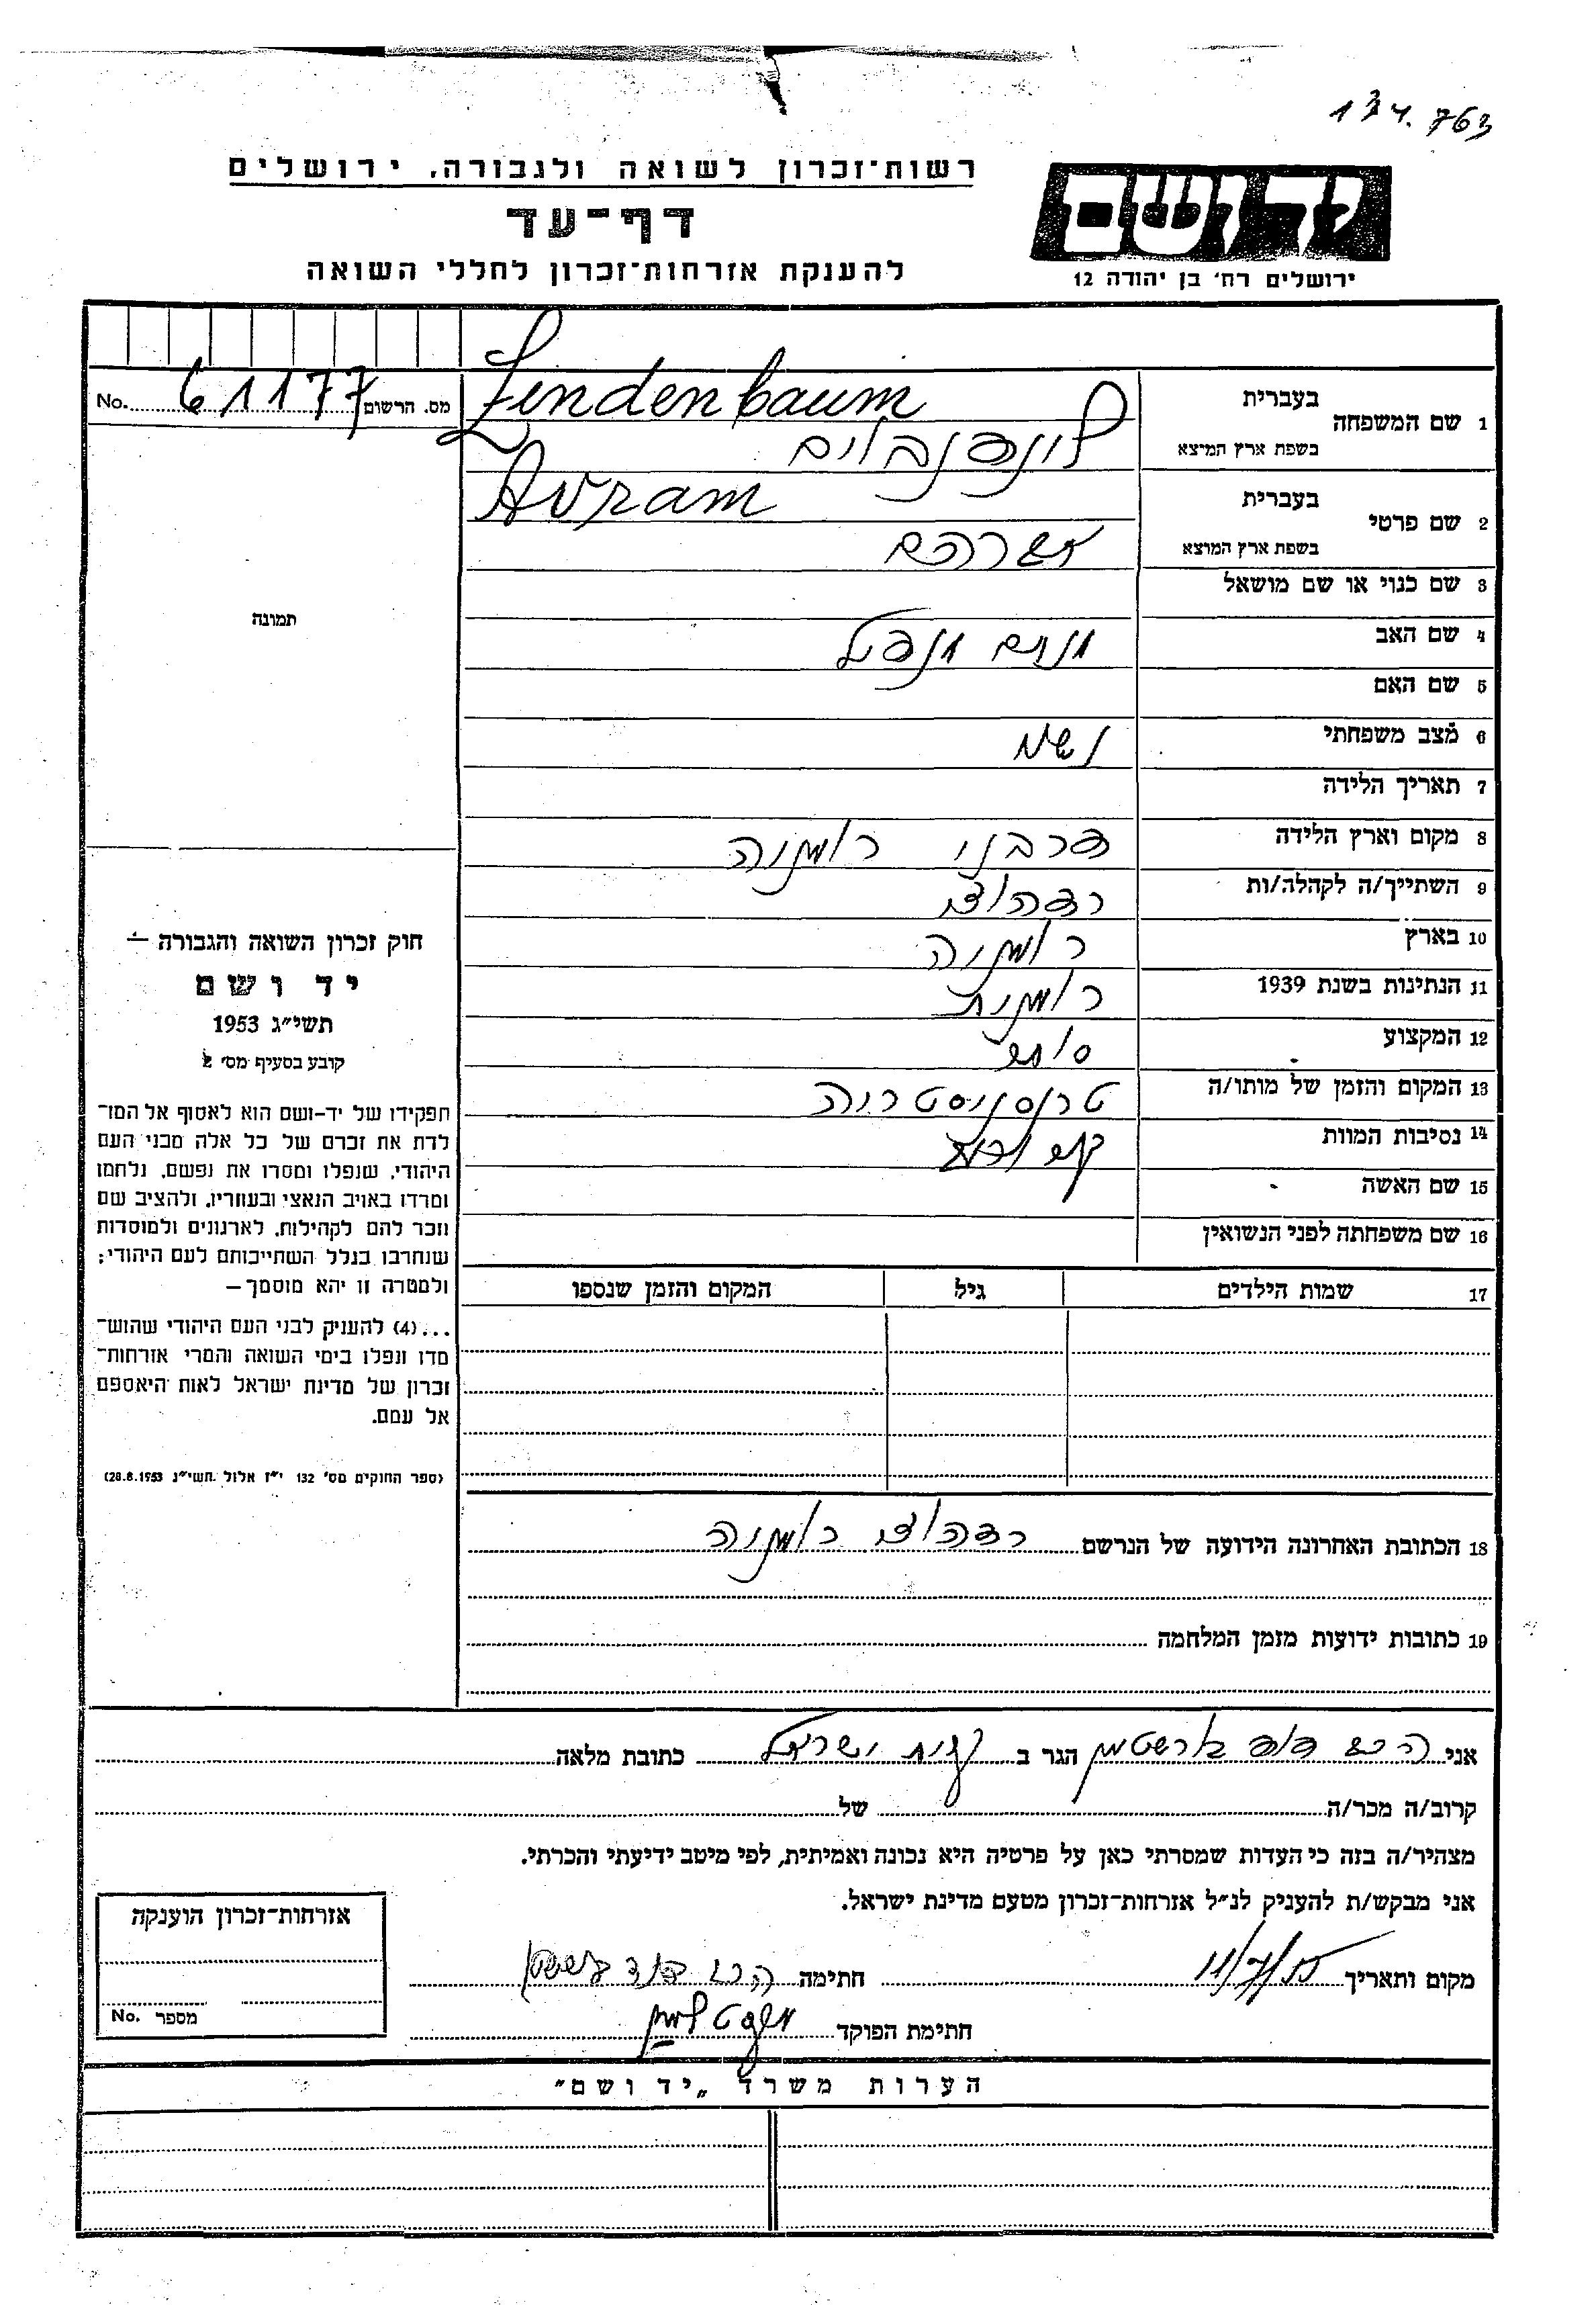 134.763
רשות־זכרון לשואה ולגבורה, ירושלים
דף־עד
להענקת אזרחות־זכרון לחללי השואה
יד ושם
ירושלים רח׳ בן יהודה 12
No. 61177 מס. הרשום
1 שם המשפחה
בעברית Lindenbaum
בשפת ארץ המוצא לינדנבוים
2 שם פרטי
בעברית Avram
בשפת ארץ המוצא אברהם
3 שם כנוי או שם מושאל
4 שם האב מנחם מנדיל
5 שם האם
6 מצב משפחתי נשוי
7 תאריך הלידה
8 מקום וארץ הלידה רומניה
9 השתייך/ה לקהלה/ות רדאוץ
10 בארץ רומניה
11 הנתינות בשנת 1939 רומנית
12 המקצוע סוחר
13 המקום והזמן של מותו/ה טרנסניסטריה
14 נסיבות המוות
15 שם האשה
16 שם משפחתה לפני הנשואין
17 שמות הילדים גיל המקום והזמן שנספו
תמונה
חוק זכרון השואה והגבורה —
יד ושם
תשי״ג 1953
קובע בסעיף מס׳ 2
תפקידו של יד-ושם הוא לאסוף אל המו־
לדת את זכרם של כל אלה מבני העם
היהודי, שנפלו ומסרו את נפשם, נלחמו
ומרדו באויב הנאצי ובעוזריו, ולהציב שם
וזכר להם לקהילות, לארגונים ולמוסדות
שנחרבו בגלל השתייכותם לעם היהודי;
ולמטרה זו יהא מוסמך —
...(4) להעניק לבני העם היהודי שהוש־
מדו ונפלו בימי השואה והמרי אזרחות־
זכרון של מדינת ישראל לאות היאספם
אל עמם.
(ספר החוקים מס׳ 132 י״ז אלול תשי״ג 28.8.1953)
18 הכתובת האחרונה הידועה של הנרשם רדאוץ רומניה
19 כתובות ידועות מזמן המלחמה
אני הרב דוד הגר ב כתובת מלאה
קרוב/ה מכר/ה של
מצהיר/ה בזה כי העדות שמסרתי כאן על פרטיה היא נכונה ואמיתית, לפי מיטב ידיעתי והכרתי.
אני מבקש/ת להעניק לנ״ל אזרחות־זכרון מטעם מדינת ישראל.
מקום ותאריך חתימה הרב דוד
חתימת הפוקד
אזרחות־זכרון הוענקה
מספר No.
הערות משרד „יד ושם״